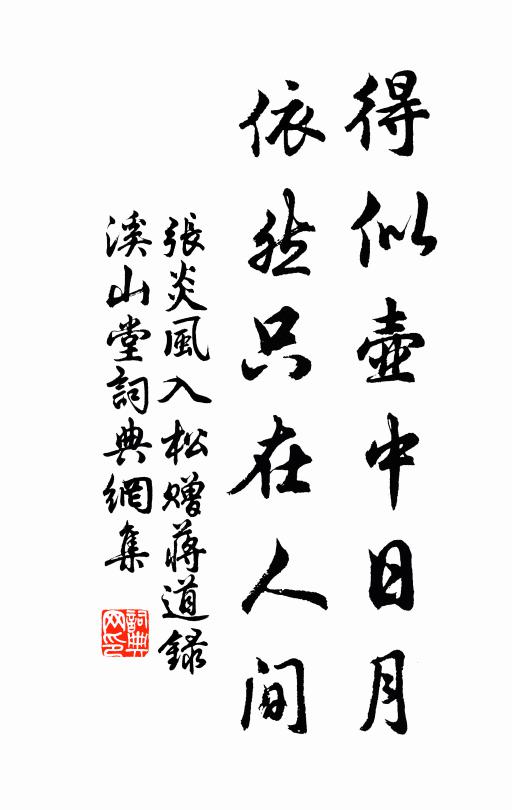 得似壺中日月
依然只在人间
張炎風入松赠蔣道録
溪山堂詞典網集
詞典网印